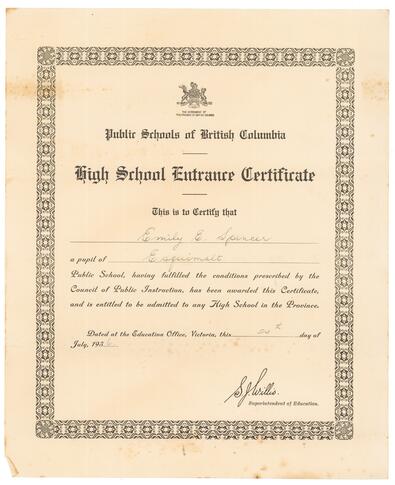 THE GOVERNMENT OF
THE PROVINCE OF BRITISH COLUMBIA
Public Schools of British Columbia
High School Entrance Certificate
This is to Certify that
Emily E. Spencer
a pupil of Esquimalt
Public School, having fulfilled the conditions prescribed by the
Council of Public Instruction, has been awarded this Certificate,
and is entitled to be admitted to any High School in the Province.
Dated at the Education Office, Victoria, this day of
July, 193
S.J. Willis.
Superintendent of Education.